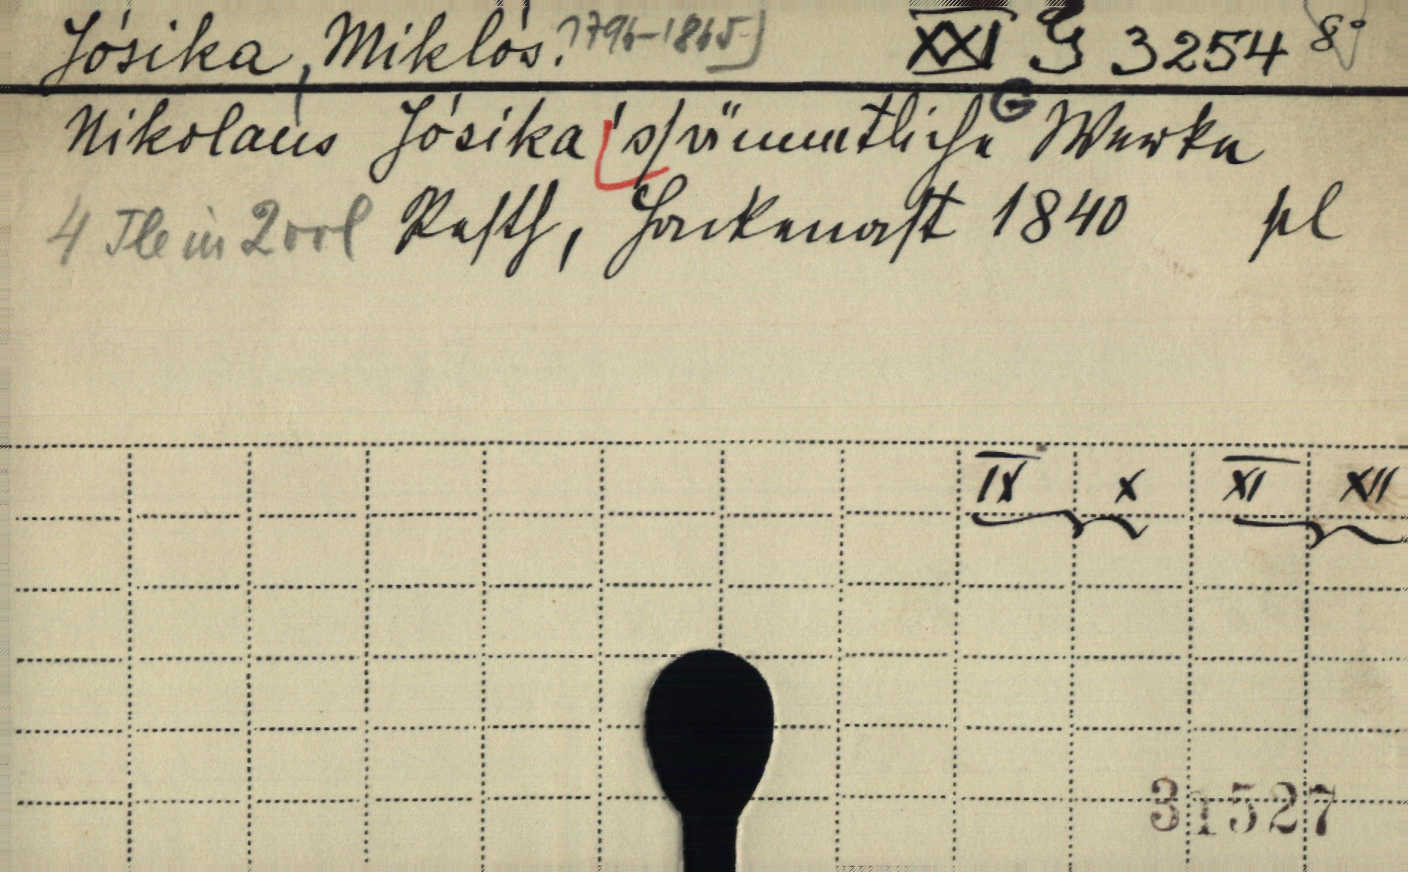 Jósika, Miklós. 1796-1865] XXI G 3254 8°
G
Nikolaus Jósika's sämmtliche Werke
4 Tle in 2 vol Pesth, Heckenast 1840 pl
IX X XI XII
31527